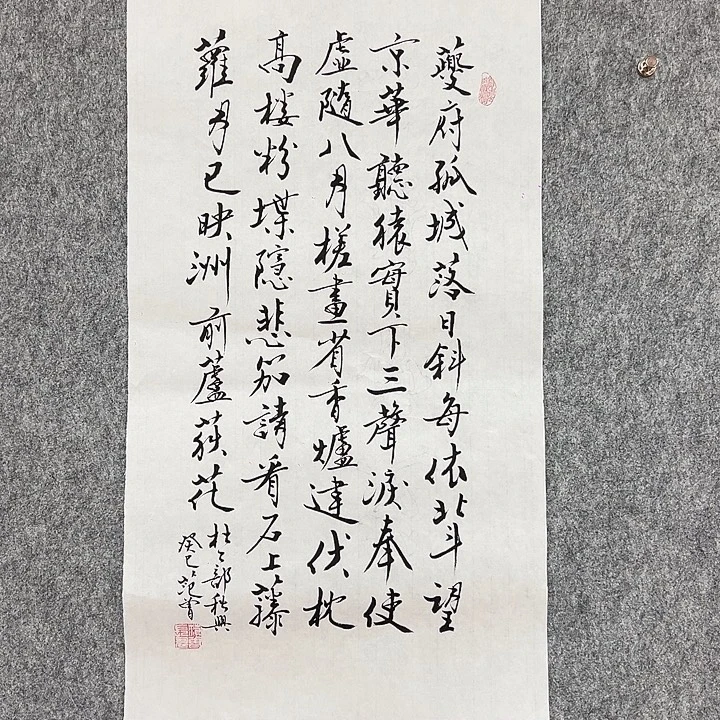 夔府孤城落日斜每依北斗望
京華聽猿實下三聲淚奉使
虛隨八月槎畫省香爐違伏枕
高樓粉堞隱悲笳請看石上藤
蘿月已映洲前蘆荻花
杜工部秋興
癸巳范曾